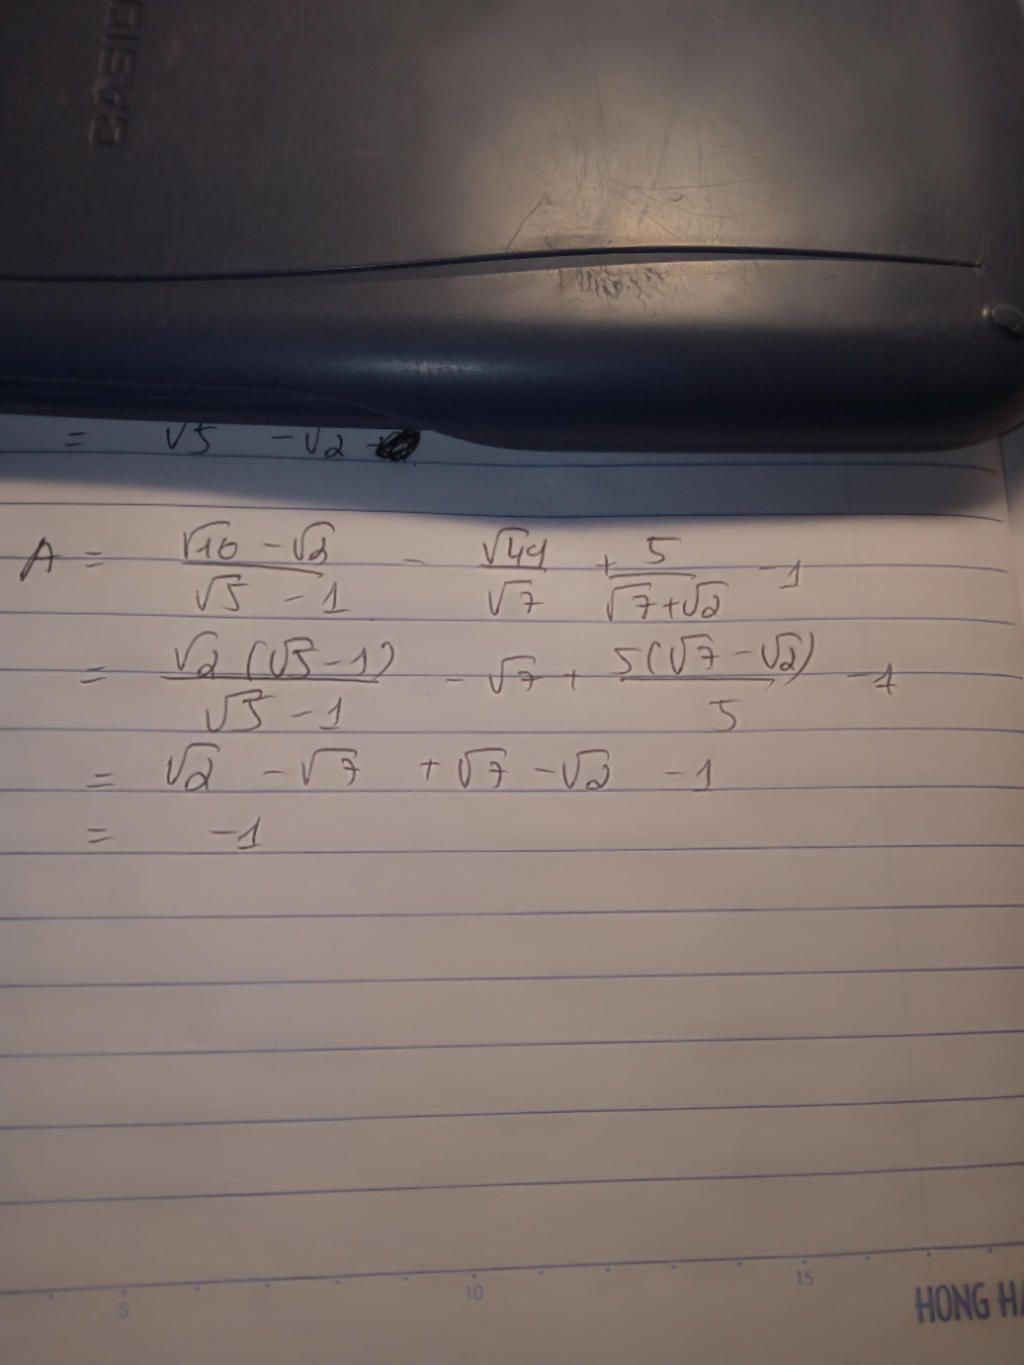 CASIO
= √5 - √2
A = (√10 - √2)/(√5 - 1) - √49/√7 + 5/(√7+√2) - 1
= √2 (√5 - 1)/(√5 - 1) - √7 + 5(√7 - √2)/5 - 1
= √2 - √7 + √7 - √2 - 1
= -1
5 10 15
HONG HA